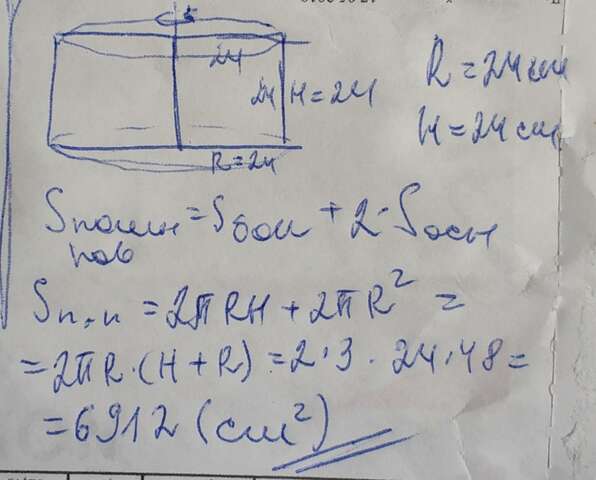 24
24 H=24
R=24
R=24см
H=24см
Sполн=Sбок+2·Sосн
пов
Sп.п=2πRH+2πR²=
=2πR·(H+R)=2·3·24·48=
=6912(см²)